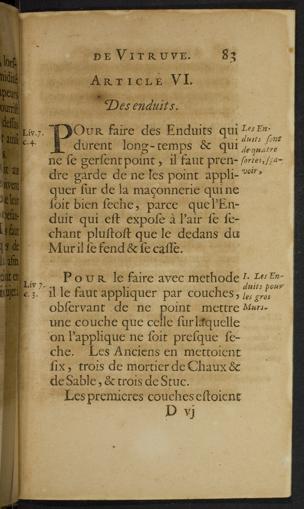 DE VITRUVE. 83
ARTICLE VI.
Des enduits.
Liv. 7.
c. 4.
POUR faire des Enduits qui
durent long-temps & qui
ne se gersent point, il faut pren-
dre garde de ne les point appli-
quer sur de la maçonnerie qui ne
soit bien seche, parce que l'En-
duit qui est exposé à l'air se se-
chant plustost que le dedans du
Mur il se fend & se casse.
Les En-
duits sont
de quatre
sortes, sça-
voir,
Liv 7.
c. 3.
POUR le faire avec methode
il le faut appliquer par couches,
observant de ne point mettre
une couche que celle sur laquelle
on l'applique ne soit presque se-
che. Les Anciens en mettoient
six, trois de mortier de Chaux &
de Sable, & trois de Stuc.
I. Les En-
duits pour
les gros
Murs.
Les premieres couches estoient
D vj